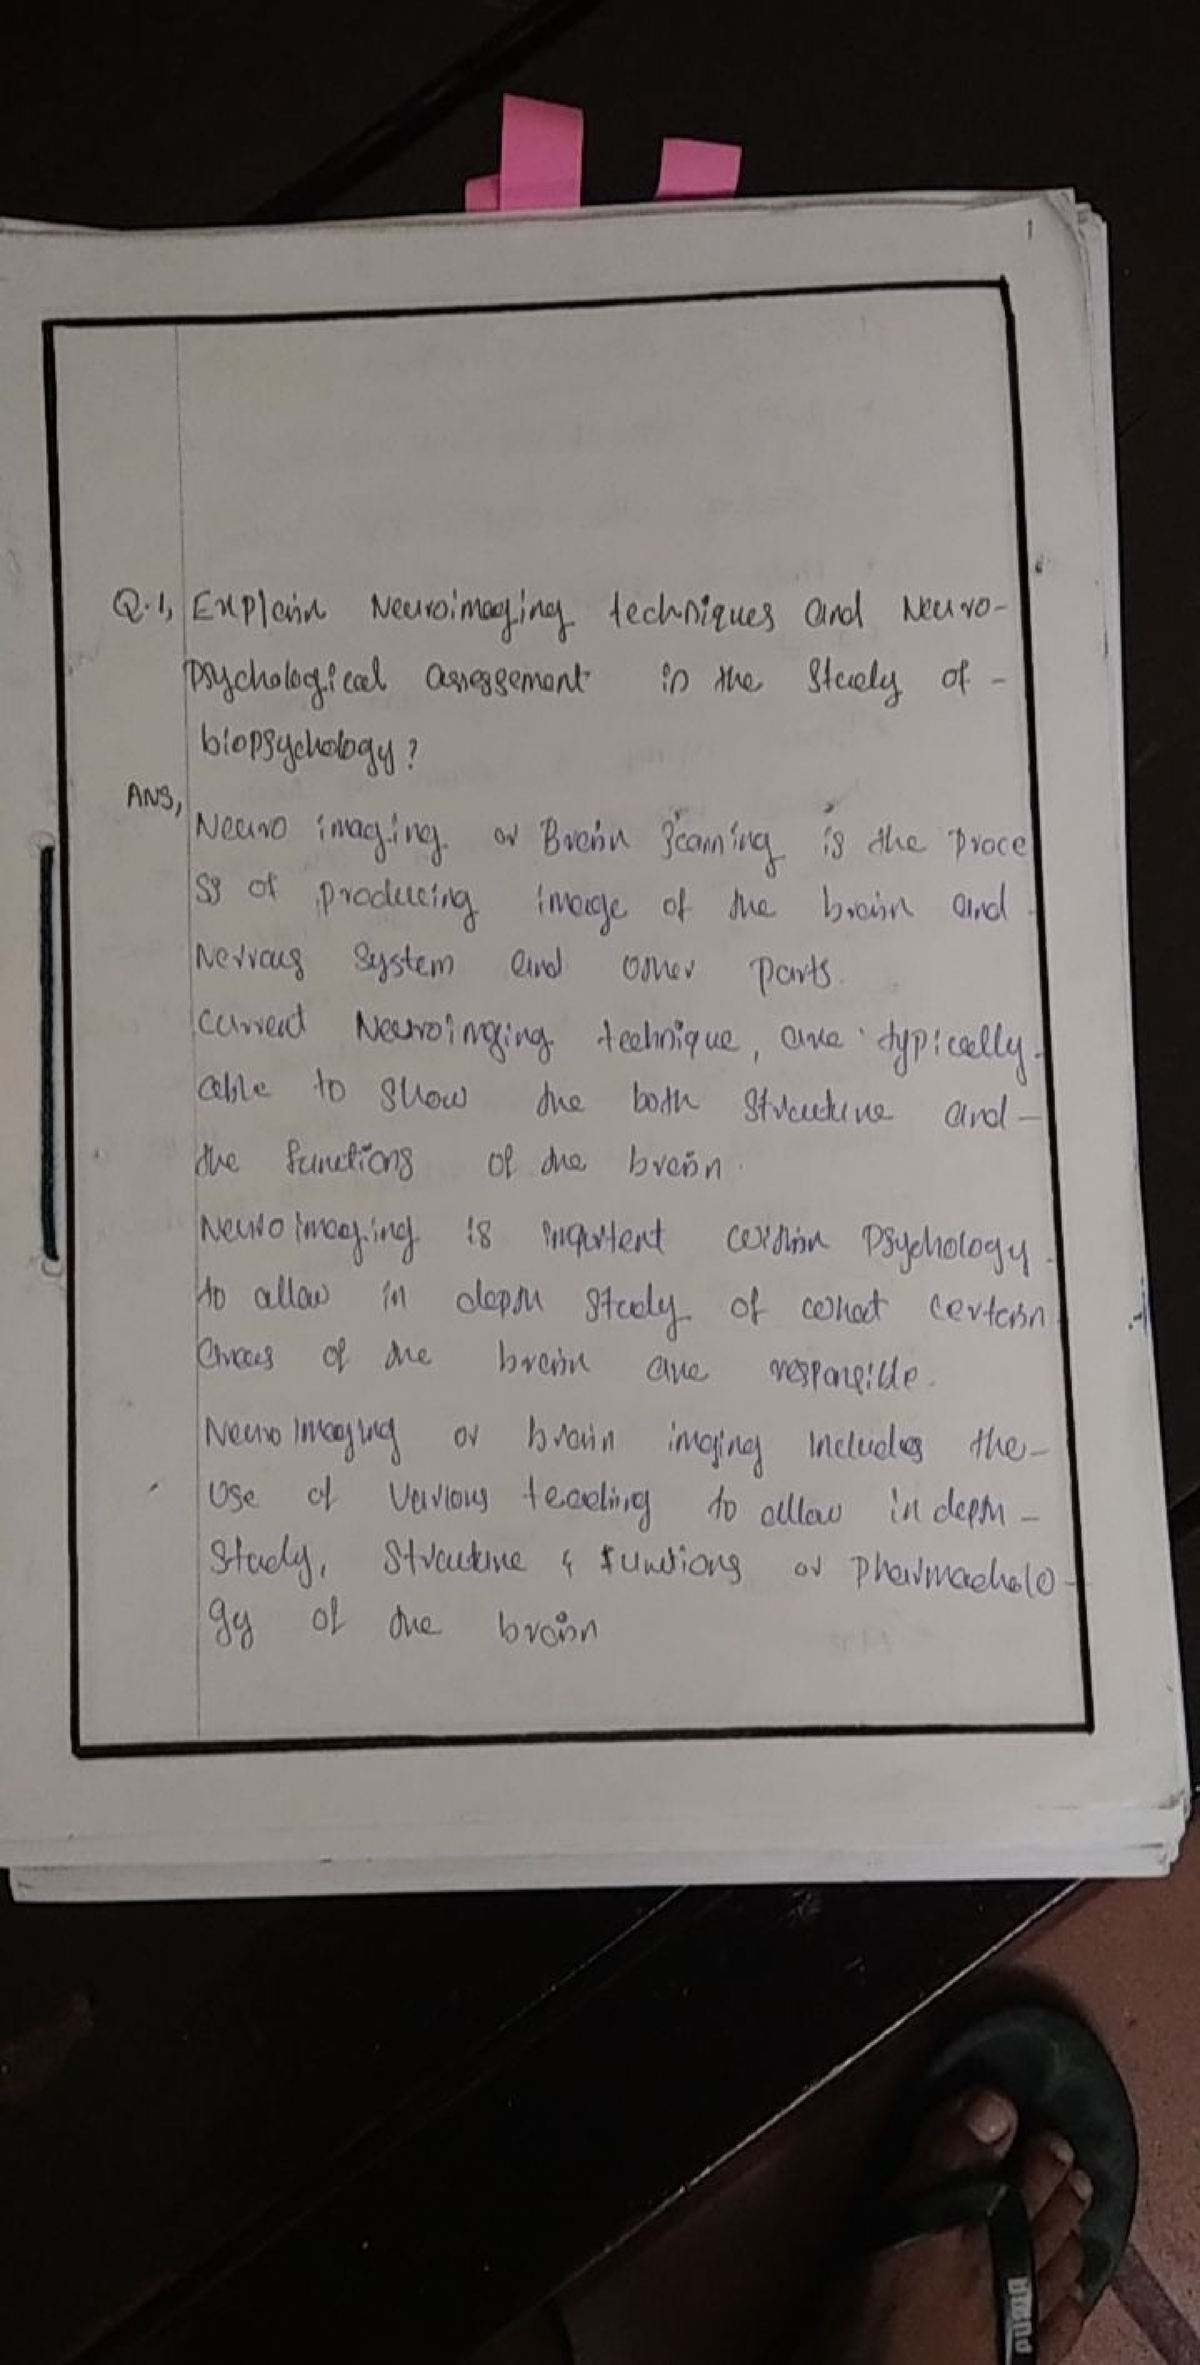 1
Q.1, Explain Neuroimaging techniques and Neuro-
psychological assessement in the Study of -
biopsychology?
ANS,
Neuro imaging or Brain Scanning is the proce
ss of producing image of the brain and
Nervous System and other parts.
Current Neuroimging technique, are typically
able to show the both structure and -
the functions of the brain.
Neuro imaging is important within Psychology
to allow in depth study of what certain
areas of the brain are responsible.
Neuro Imaging or brain imging includes the -
use of various to allow in depth -
study, Structure & functions or Pharmacholo -
gy of the brain
PUMA